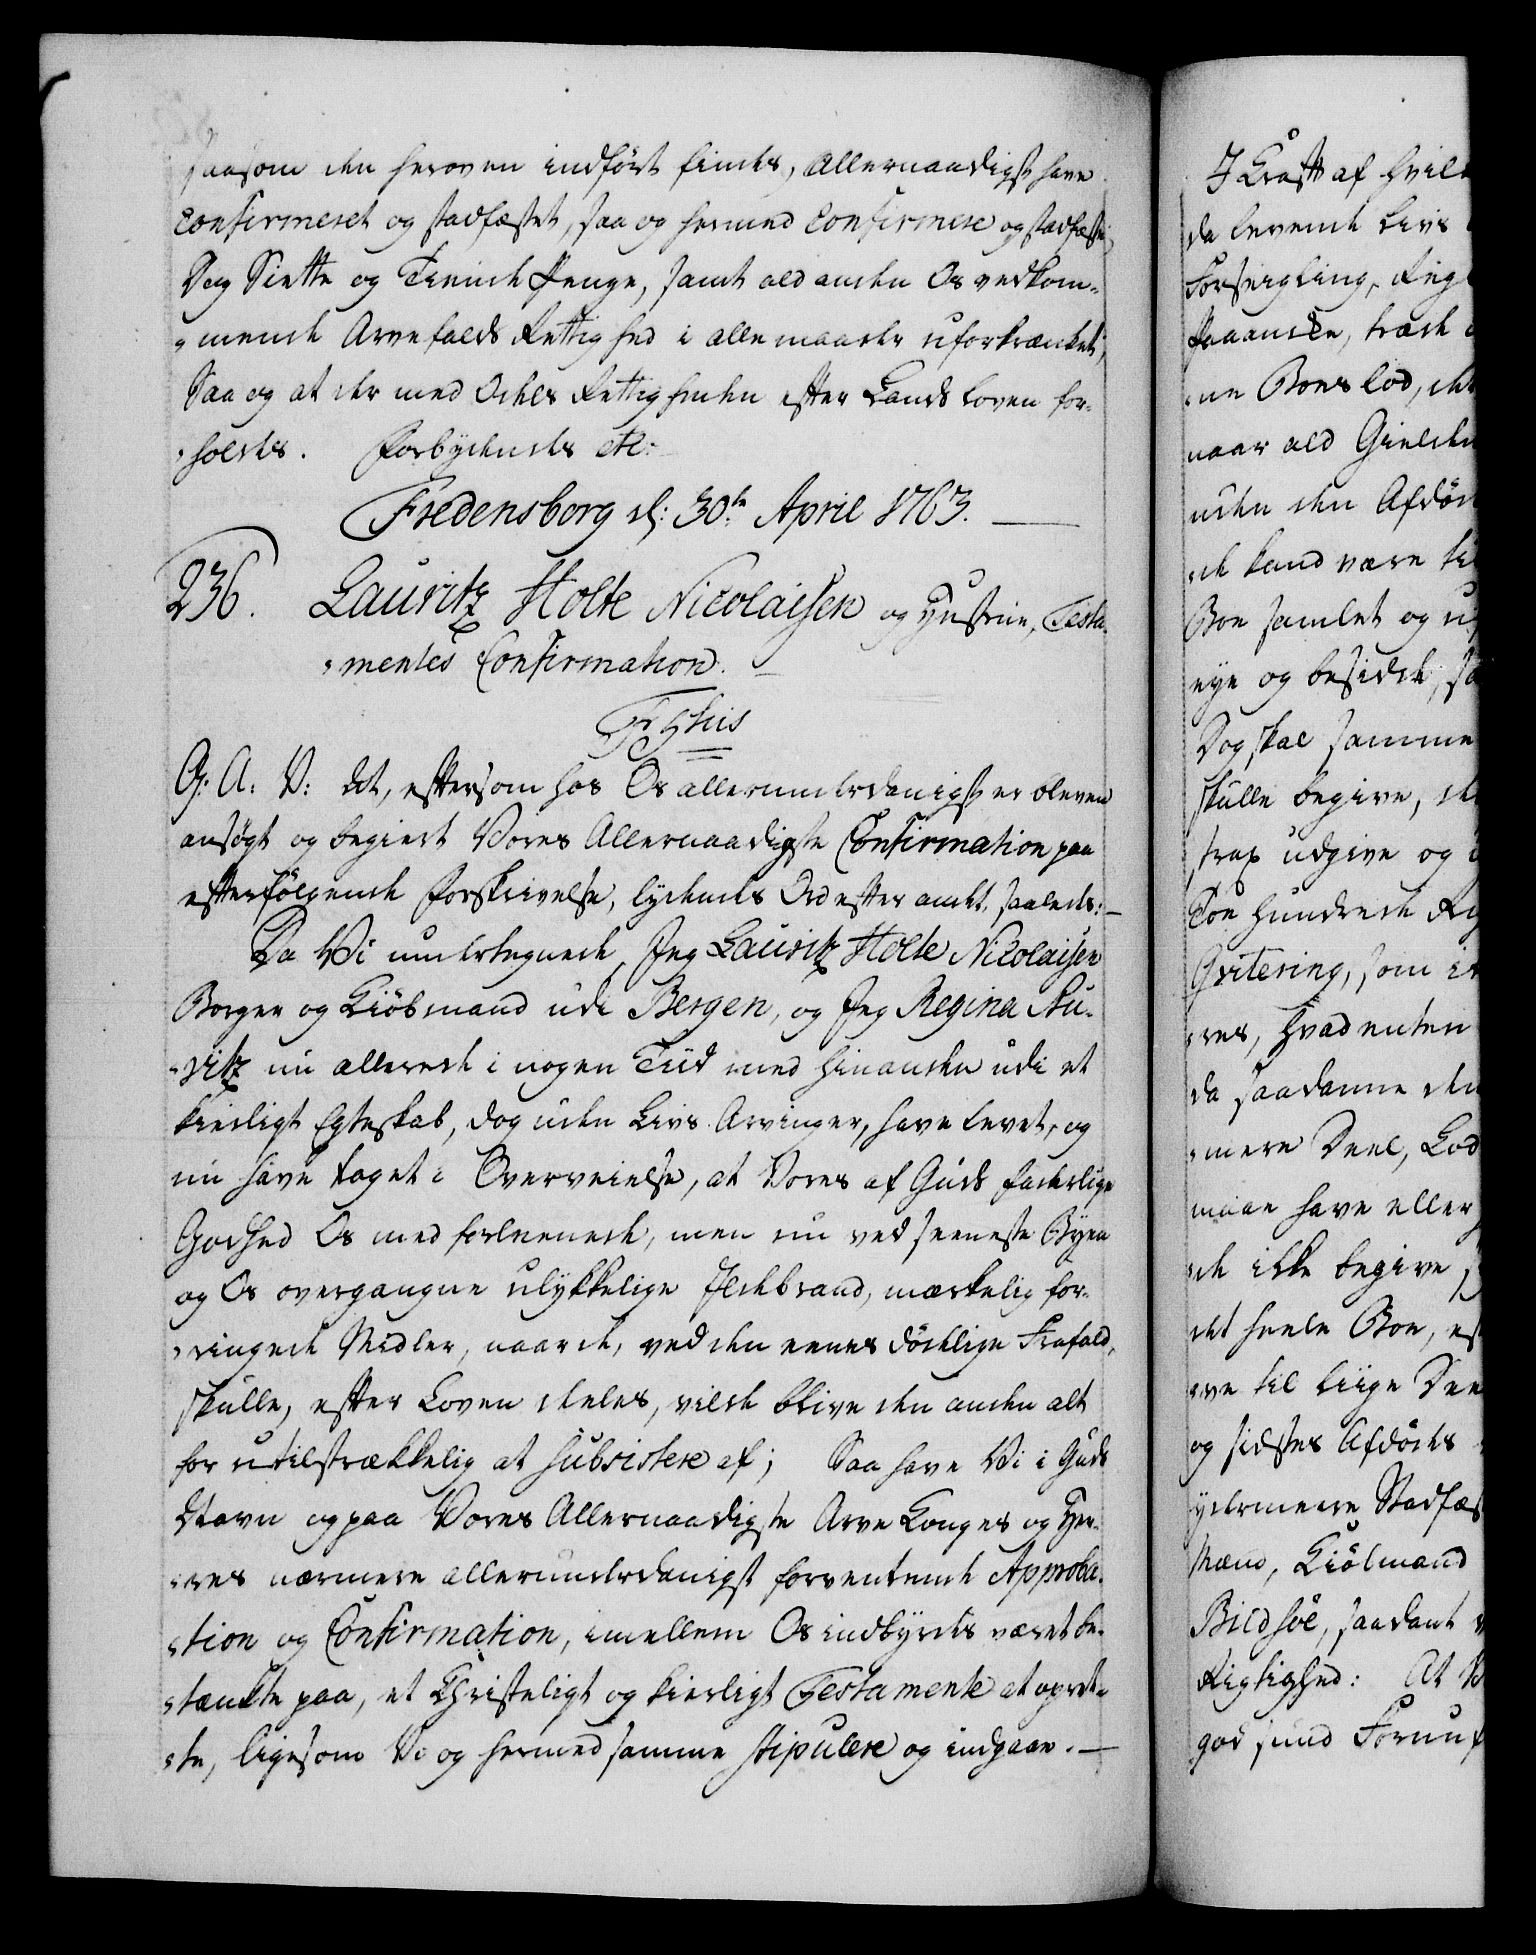 saasom den heroven indført findes, Allernaadigst have
confirmeret og stadfæstet, saa og hermed confirmere og stadfæste,
Dog Siette og Tiende Penge, samt ald anden Os vedkom-
mende Arvefalds Rettighed i alle maader uforkrænket,
Saa og at der med Odels Rettigheden efter Lands Loven for-
holdes. Forbydendes etc:
Fredensborg d: 30te April 1763.
236. Lauritz Holte Nicolaisen og Hustrue, Testa-
mentes Confirmation.
F 5tus
G: A: V: at, eftersom hos Os allerunderdanigst er bleven
ansøgt og begiert Vores Allernaadigste Confirmation paa
efterfølgende forskrivelse, lydendes Ord efter andet, saaledes:
Da Vi undertegnede, Jeg Lauritz Holte Nicolaisen
Borger og Kiøbmand udi Bergen, og Jeg Regina Au-
ritz nu allerede i nogen Tiid med hinanden udi et
kierligt Egteskab, dog uden Livs Arvinger, have levet, og
nu have taget i Overveielse, at Vores af Guds faderlige
Godhed Os med forleenede, men nu ved seeneste Byen
og Os overgangne ulykkelige Jldebrand, mærkelig for-
ringede Midler, naar de, ved den eenes dødelige Frafald,
skulle, efter Loven deeles, vilde blive den anden alt
for utilstrækkelig at subsistere af; Saa have Vi i Guds
Navn og paa Vores Allernaadigste Arve Konges og Her-
res nærmere allerunderdanigst forventende Approba-
tion og Confirmation, imellem Os indbyrdes været be-
tænkte paa, et Christeligt og kierligt Testamente at opret-
te, ligesom Vi og hermed samme stipulere og indgaae.
I Kraft af hvilk
da levende Livs
Forseigling, Reg
Paaanke, træde
ne Boes lod, det
naar ald Gielden
uden den Afdød
de kand være til
Boe samlet og u
eye og beside, sa
Dog skal samme
skulle begive, de
strax udgive og
Toe hundrede Rd
Qvitering, som i
res, hvad enten
da saadanne den
mere Deel, Lod
maae have eller
de ikke begive
det heele Boe, ef
ve til liige Dee
og sidstes Afdødes
ydermeere Stadfæs
Mænd, Kiøbmand
Bildsøe, saadant
Rigtighed: At V
god sund Fornuf